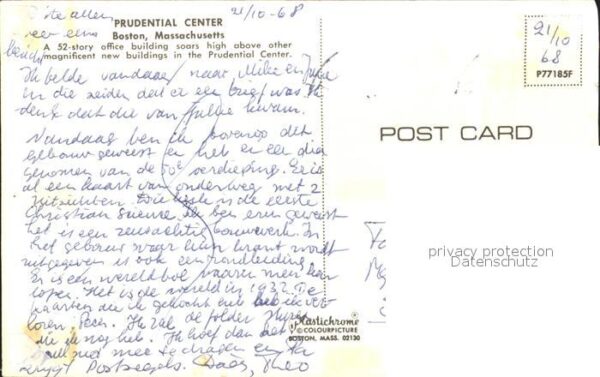 21/10-68
PRUDENTIAL CENTER
Boston, Massachusetts
A 52-story office building soars high above other
magnificent new buildings in the Prudential Center.
Ik belde vandaag naar Mike en
en die zeiden dat er een brief was. Ik
denk dat die van jullie kwam.
Vandaag ben ik bovenop dit
gebouw geweest en heb er een dia
genomen van de 50e verdieping. Er is
al een kaart van onderweg met 2
is de eerste
Christian Science ik ben erin geweest
het is een bouwwerk. In
het gebouw waar hun krant wordt
uitgegeven is ook een rondleiding
Er is een wereldbol waarin men kan
lopen. Het is de wereld in 1932. De
kaarten die ik gekocht heb ik ver-
loren. Ik zal de folder
die ik nog heb. Ik hoef dan het
niet mee te dragen en
Postzegels. Daag, Theo
21/10
68
P77185F
POST CARD
privacy protection
Datenschutz
Plastichrome
COLOURPICTURE
BOSTON, MASS. 02130